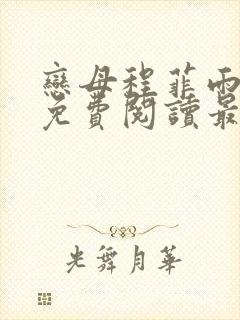 戀母程菲雨
免費閱讀最
光舞月華